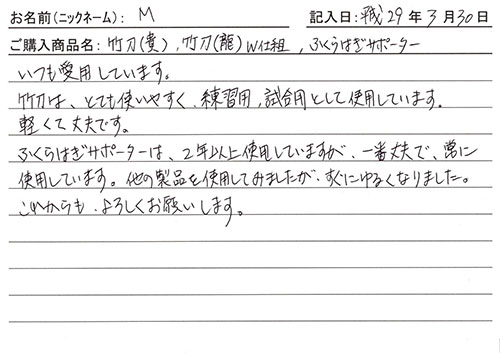 お名前(ニックネーム): M 記入日: 平成 29 年 3 月 30 日
ご購入商品名: 竹刀(貴), 竹刀(龍) W仕組, ふくらはぎサポーター
いつも愛用しています。
竹刀は、とても使いやすく、練習用、試合用として使用しています。
軽くて丈夫です。
ふくらはぎサポーターは、2年以上使用していますが、一番丈夫で、常に
使用しています。他の製品を使用してみましたが、すぐにゆるくなりました。
これからも、よろしくお願いします。